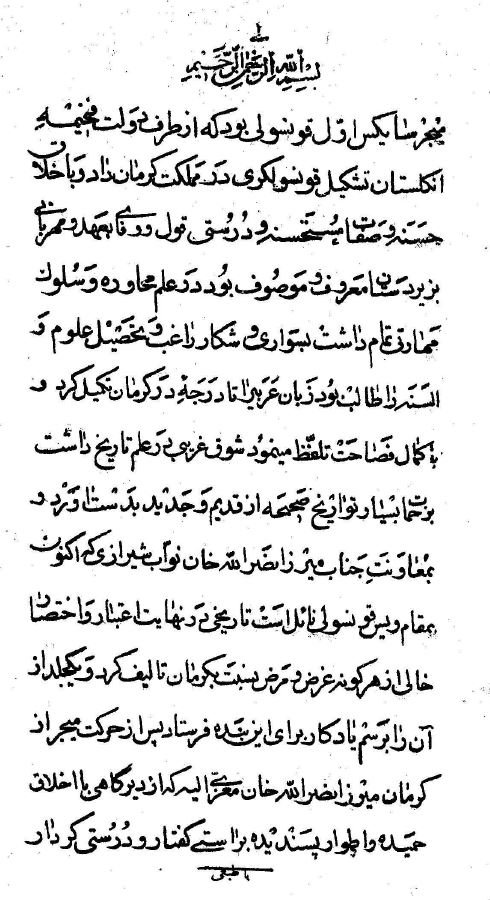 ۲
بسم الله الرحمن الرحیم
میجر سایکس اول قونسولی بود که از طرف دولت فخیمه
انکلستان تشکیل قونسولکری در مملکت کرمان داد و باخلاق
حسنه و صفات مستحسنه و درستی قول و وفای بعهد و مهربانی
بزیردستان معروف و موصوف بود در علم محاوره و سلوک
مهارتی تمام داشت بسواری و شکار راغب و بتحصیل علوم و
السنه را طالب بود زبان عربی را تا درجهٔ در کرمان تکمیل کرد و
با کمال فصاحت تلفظ مینمود شوق غریبی در علم تاریخ داشت
بزحمات بسیار تواریخ صحیحه از قدیم و جدید بدست آورد و
بمعاونت جناب میرزا نصرالله خان نواب شیرازی که اکنون
بمقام ویس قونسولی نائل است تاریخی در نهایت اعتبار و اختصار
خالی از هر کونه غرض و مرض نسبت بکرمان تالیف کرد و یکجلد از
آن را برسم یادکار برای این بنده فرستاد پس از حرکت میجر از
کرمان میرزا نصرالله خان معزی الیه که از دیرگاهی با اخلاق
حمیده و اطوار پسندیده براستی کفتار و درستی کردار